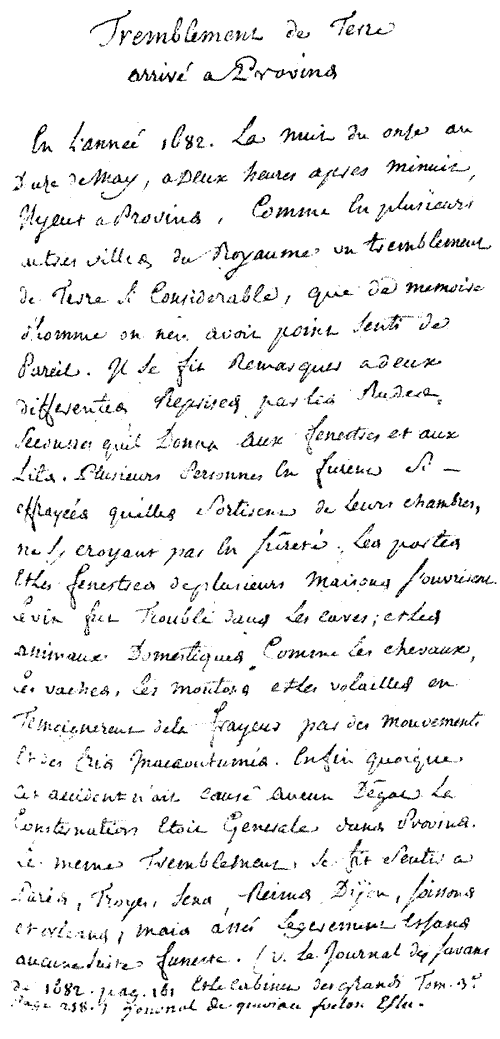 Tremblement de Terre
arrivé a Provins
En L'anneé 1682. La nuit du onze au
Duze de May, a Deux heures apres minuit,
Il y eut a Provins, Comme En plusieurs
autres villes du Royaume un tremblement
de Terre si Considerable, que de memoire
d'homme on n'en avoit point senti de
Pareil. Il se fit Remarquer a deux
differentes Reprises par les Rudes
Secousses qu'il Donna aux fenestres et aux
Lits. Plusieurs Personnes En furent si
effrayeés quelles sortirent de Leurs chambres,
ne s'y croyant pas En sûreté. Les portes
Et les fenestres de plusieurs maisons s'ouvrirent
Le vin fut Troublé dans Les caves; et les
animaux Domestiques, Comme Les chevaux,
Les vaches, Les moutons et les volailles en
Temoignerent de la frayeur par des mouvements
Et des Cris Inaccoutumés. Enfin quoique
cet accident n'ait causé aucun Dégat La
Consternation Etoit Generale dans Provins.
Le meme Tremblement se fit sentir a
Paris, Troyes, Sens, Reims, Dijon, soissons
et orleans, mais assés Legerement Et sans
aucune suite funeste. (v. Le Journal des savans
de 1682. pag. 161 Et le Cabinet des grands Tom. 3e
Page 258.) Journal de